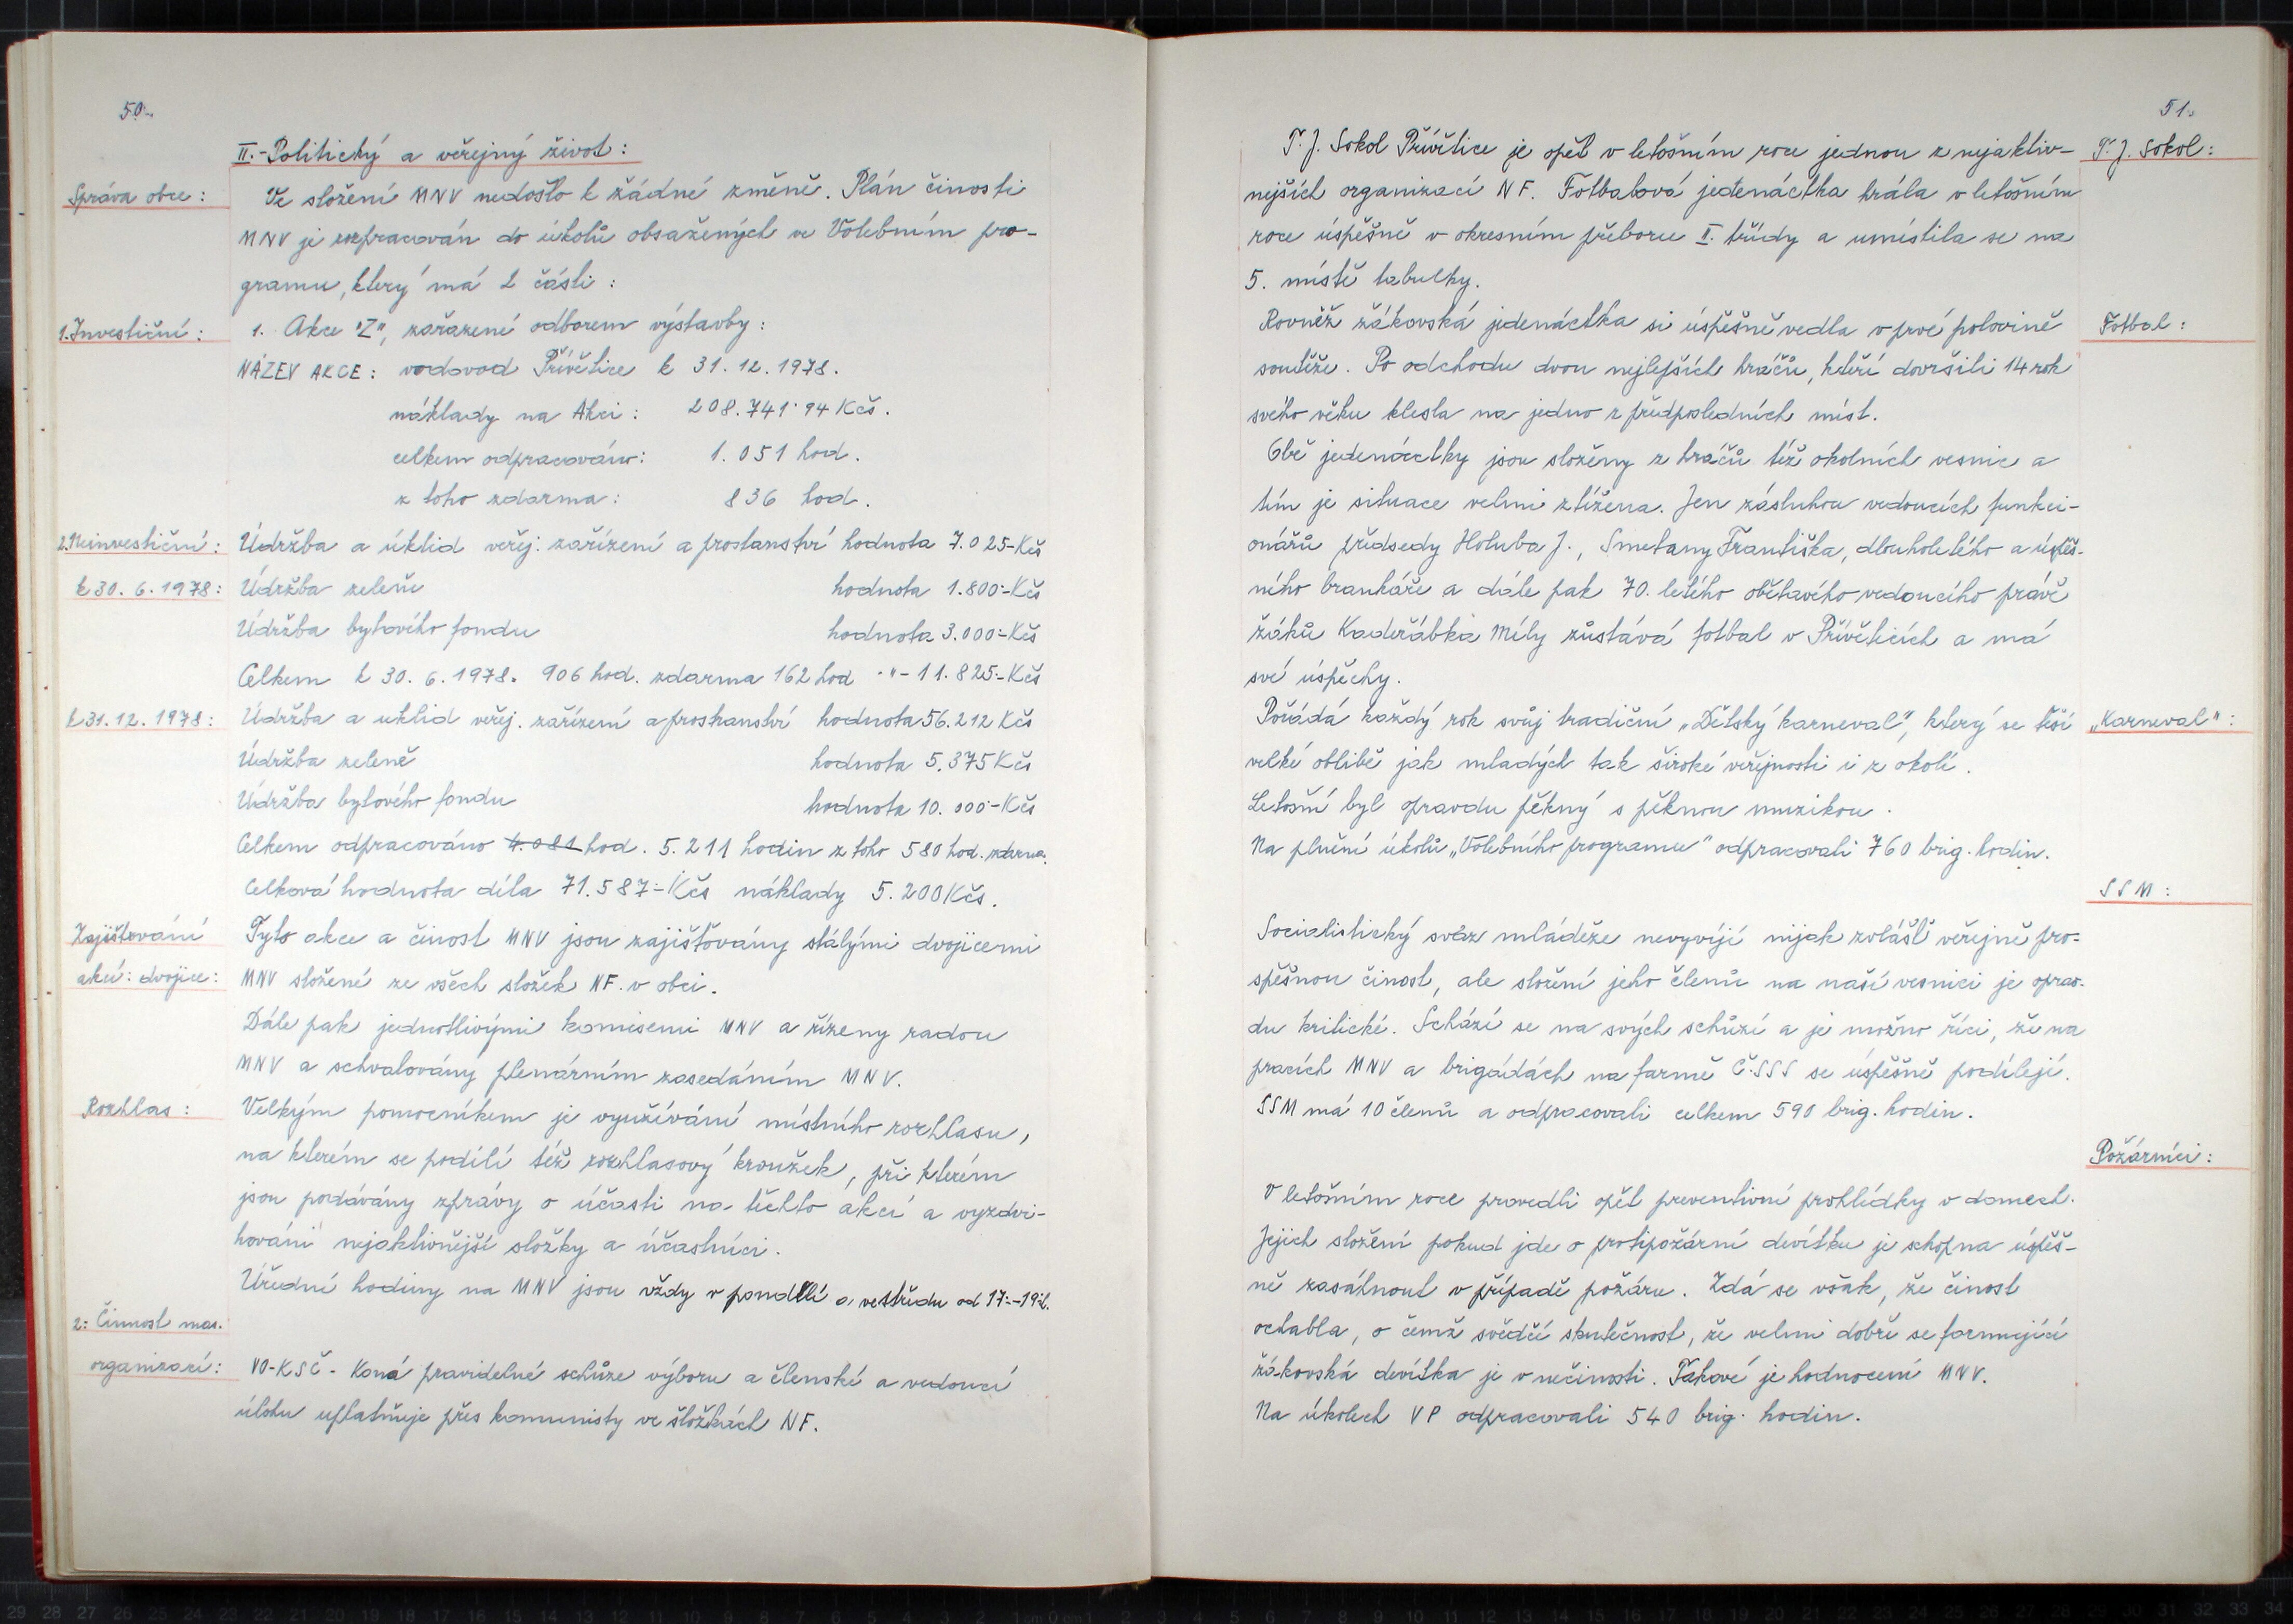 50.
II.-Politický a veřejný život:
Správa obce:
Ve složení MNV nedošlo k žádné změně. Plán činosti
MNV je rozpracován do úkolů obsažených ve Volebním pro-
gramu, který má 2 části:
1.Investiční:
1. Akce "Z", zařazené odborem výstavby:
NÁZEV AKCE: vodovod Přívětice k 31.12.1978.
náklady na Akci: 208.741·94 Kčs.
celkem odpracováno: 1.051 hod.
z toho zdarma: 836 hod.
2.Neinvestiční:
Údržba a úklid veřej. zařízení a prostanství hodnota 7.025-Kčs
k 30.6.1978:
Údržba zeleně hodnota 1.800-Kčs
Údržba bytového fondu hodnota 3.000-Kčs
Celkem k 30.6.1978. 906 hod. zdarma 162 hod -"- 11.825-Kčs
k 31.12.1978:
Údržba a uklid veřej. zařízení a prostranství hodnota 56.212 Kčs
Údržba zeleně hodnota 5.375 Kčs
Údržba bytového fondu hodnota 10.000-Kčs
Celkem odpracováno 4.081 hod. 5.211 hodin z toho 580 hod. zdarma.
Celková hodnota díla 71.587-Kčs náklady 5.200 Kčs.
Zajišťování
akcí: dvojice:
Tyto akce a činost MNV jsou zajišťovány stálými dvojicemi
MNV složené ze všech složek NF. v obci.
Dále pak jednotlivými komisemi MNV a řízeny radou
MNV a schvalovány plenárním zasedáním MNV.
Rozhlas:
Velkým pomocníkem je využívání místního rozhlasu,
na kterém se podílí též rozhlasový kroužek, při kterém
jsou podávány zprávy o účasti na těchto akcí a vyzdvi-
hováni nejaktivnější složky a účastníci.
Úřední hodiny na MNV jsou vždy v pondělí a ve středu od 17-19h.
2: Činnost mas.
organizací:
VO-KSČ - Koná pravidelné schůze výboru a členské a vedoucí
úlohu uplatňuje přes komunisty ve složkách NF.
51.
T.J. Sokol:
T.J. Sokol Přívětice je opět v letošním roce jednou z nejaktiv-
nejších organizací NF. Fotbalová jedenáctka hrála v letošním
roce úspěšně v okresním přeboru II. třídy a umístila se na
5. místě tabulky.
Fotbal:
Rovněž žákovská jedenáctka si úspěšně vedla v prvé polovině
soutěže. Po odchodu dvou nejlepších hráčů, kteří dovršili 14 rok
svého věku klesla na jedno z předposledních míst.
Obě jedenáctky jsou složeny z hráčů též okolních vesnic a
tím je situace velmi ztížena. Jen zásluhou vedoucích funkci-
onářů předsedy Holuba J., Smetany Františka, dlouholetého a úspěš-
ného brankáře a dále pak 70. letého obětavého vedoucího práve
žáků Kadeřábka Míly zůstává fotbal v Přívěticích a má
své úspěchy.
„Karneval":
Pořádá každý rok svůj tradiční „Dětský karneval", který se těší
velké oblibě jak mladých tak široké veřejnosti i z okolí.
Letošní byl opravdu pěkný s pěknou muzikou.
Na plnění úkolů „Volebního programu" odpracovali 760 brig. hodin.
SSM:
Socialistický svaz mládeže nevyvíjí nijak zvlášť veřejně pro-
spěšnou činost, ale složení jeho členů na naší vesnici je oprav-
du kritické. Schází se na svých schůzí a je možno říci, že na
pracích MNV a brigádách na farmě Č.SSS se úspěšně podílejí.
SSM má 10 členů a odpracovali celkem 590 brig. hodin.
Požárníci:
V letošním roce provedli opět preventivní prohlídky v domech.
Jejich složení pokud jde o protipožární devítku je schopna úspěš-
ně zasáhnout v případě požáru. Zdá se však, že činost
ochabla, o čemž svědčí skutečnost, že velmi dobře se formující
žákovská devítka je v nečinosti. Takové je hodnocení MNV.
Na úkolech VP odpracovali 540 brig. hodin.